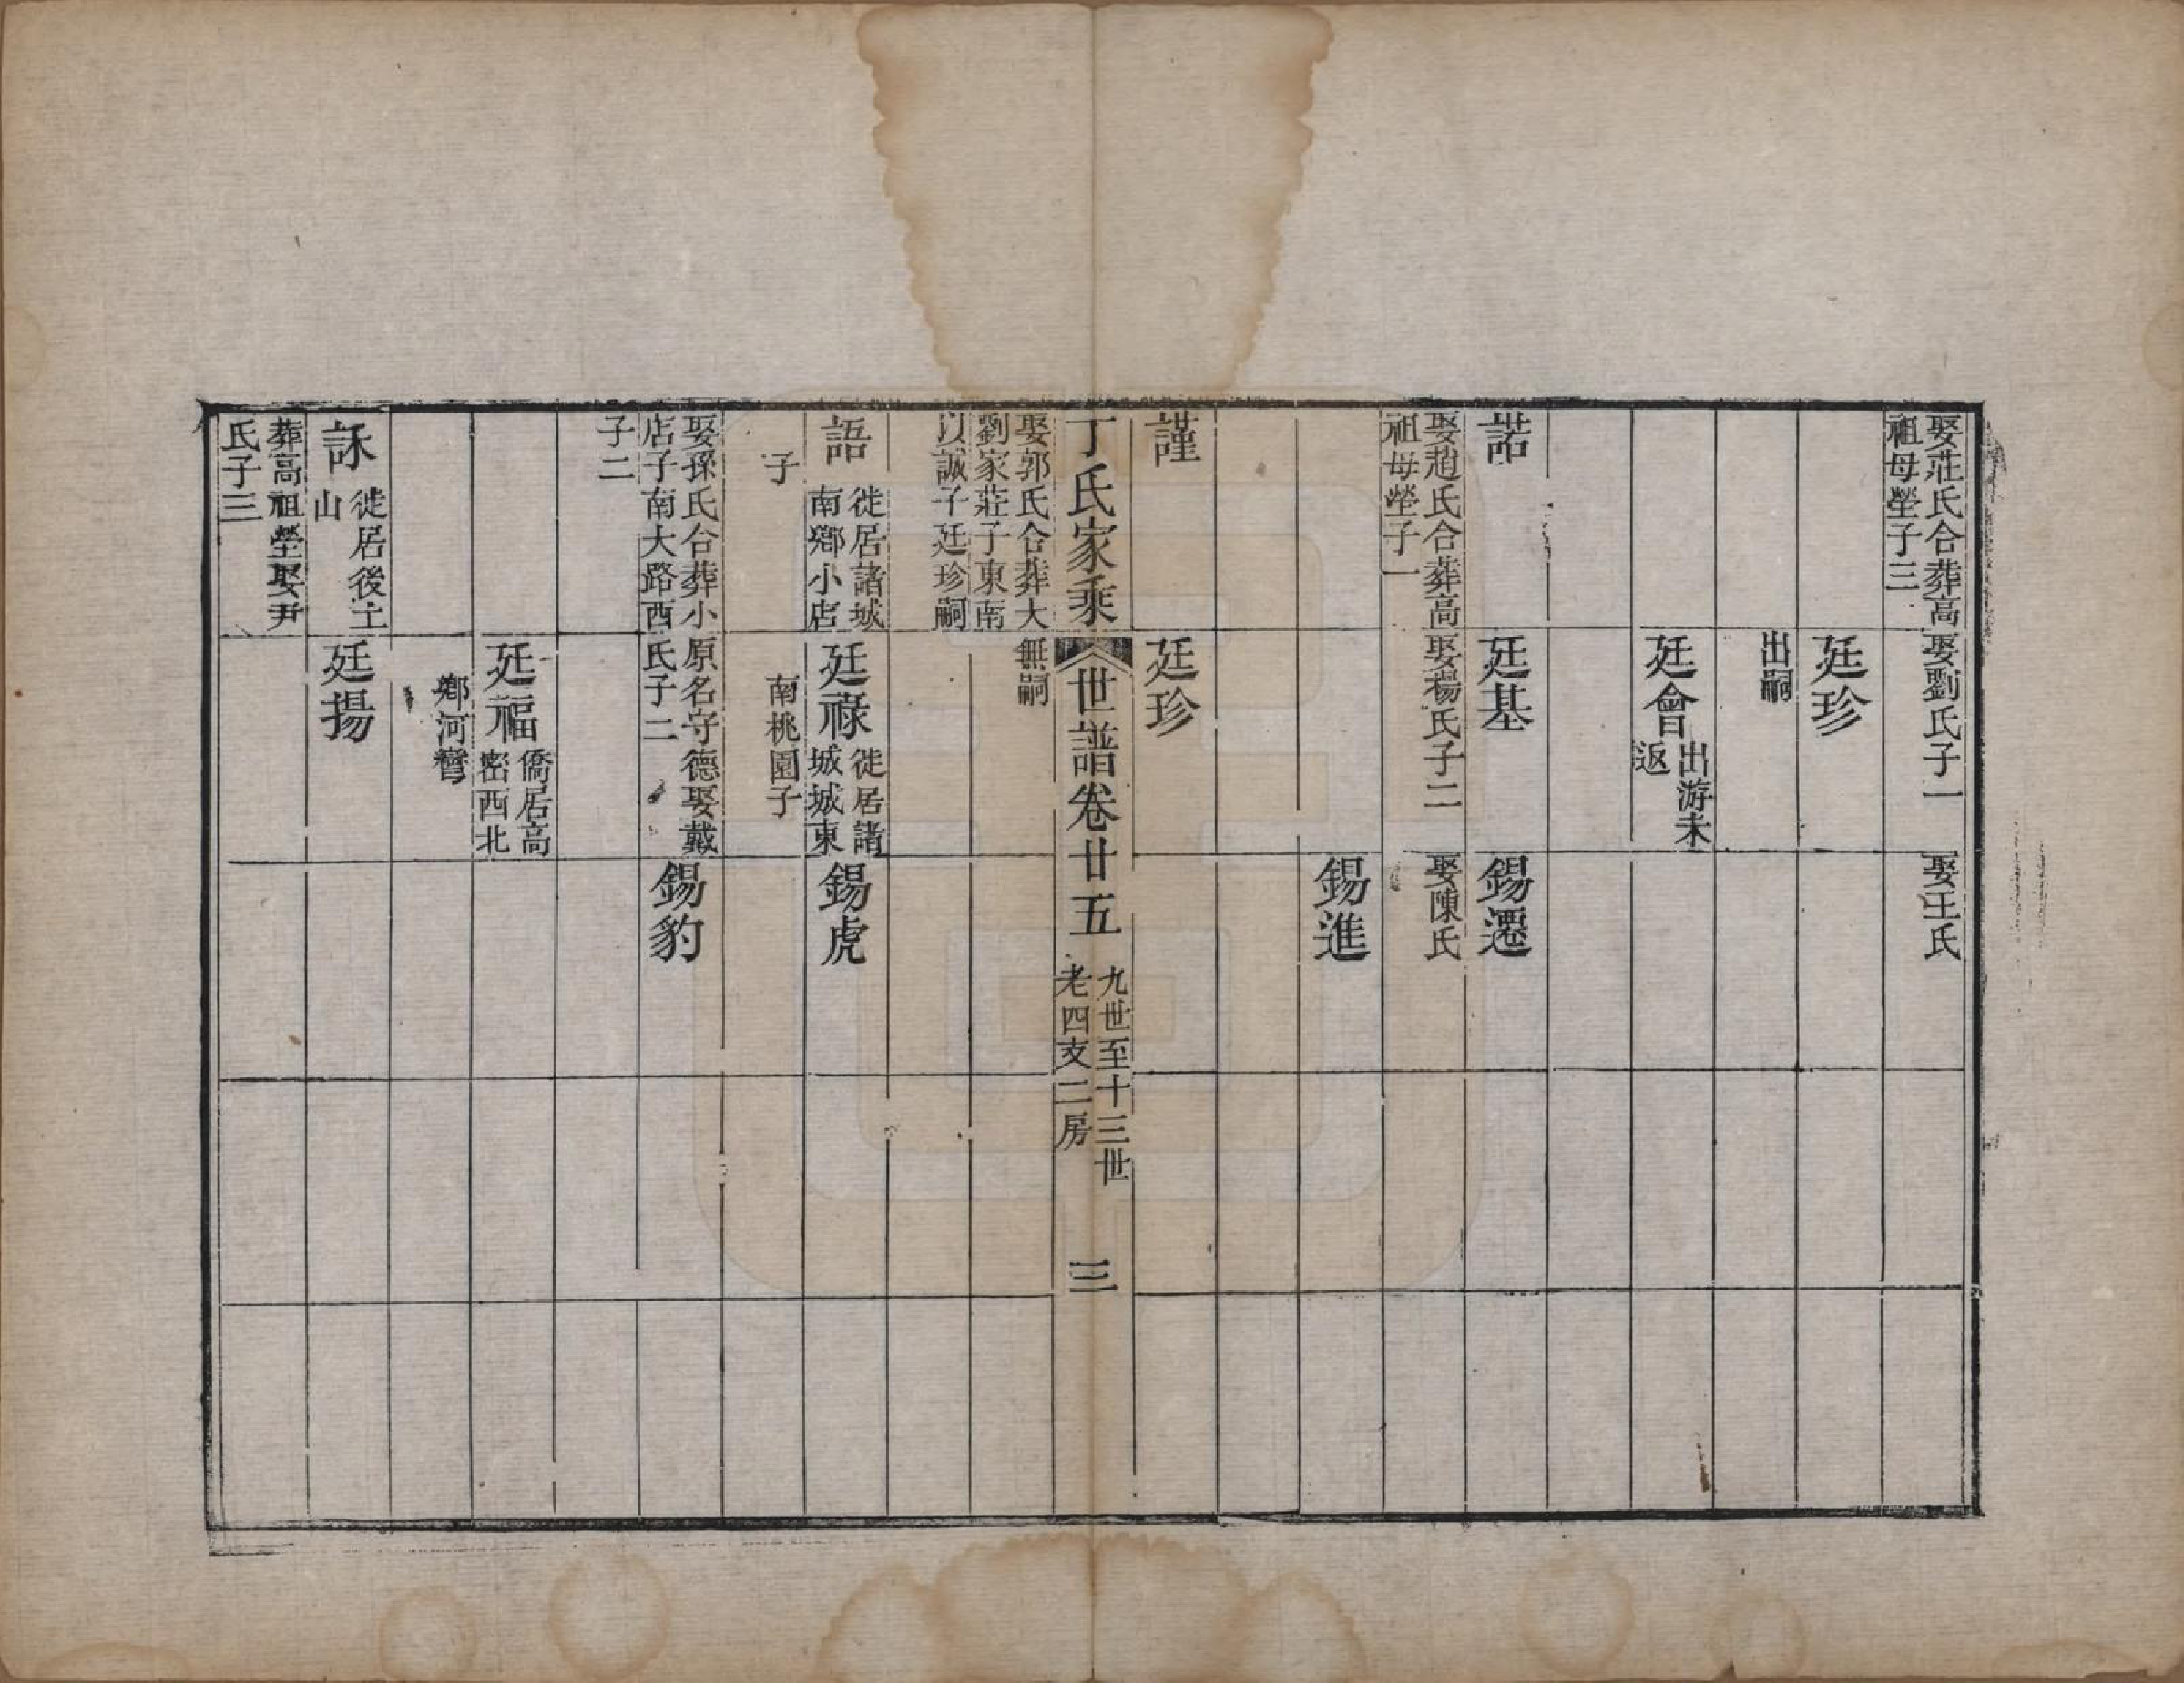 娶莊氏合葬高
祖母塋子三
娶劉氏子一
娶王氏
廷珍
出嗣
廷會
出游未
返
諾
廷基
錫遷
娶趙氏合葬高
祖母塋子一
娶楊氏子二
娶陳氏
錫進
謹
廷珍
丁氏家乘
世譜卷廿五
九世至十三世
老四支二房
三
娶郭氏合葬大
劉家莊子東南
以誠子廷珍嗣
無嗣
語
徙居諸城
南鄉小店
子
廷祿
徙居諸
城城東
南桃園子
錫虎
娶孫氏合葬小
店子南大路西
子二
原名守德娶戴
氏子二
錫豹
廷福
僑居高
密西北
鄉河彎
訸
徙居後土
山
廷揚
葬高祖塋娶尹
氏子三